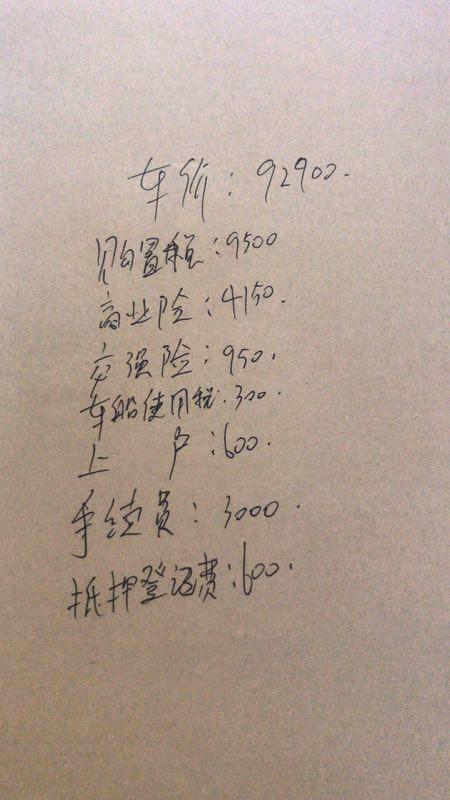 车价：92900.
购置税：9500
商业险：4150.
交强险：950.
车船使用税：300.
上 户：600.
手续费：3000.
抵押登记费：600.